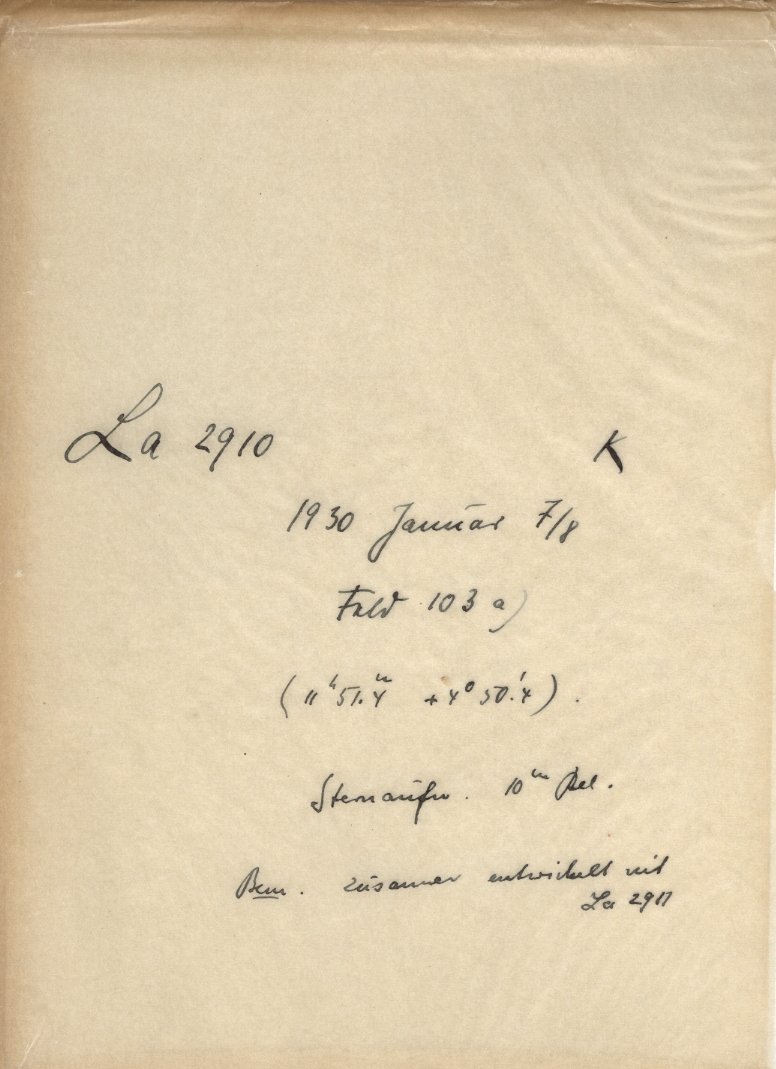 La 2910 K
1930 Januar 7/8
Feld 103 a)
(11ʰ51.ᵐ4 +4°50.′4).
Sternaufn. 10ᵐ Bel.
Bem. zusammen entwickelt mit
La 2911